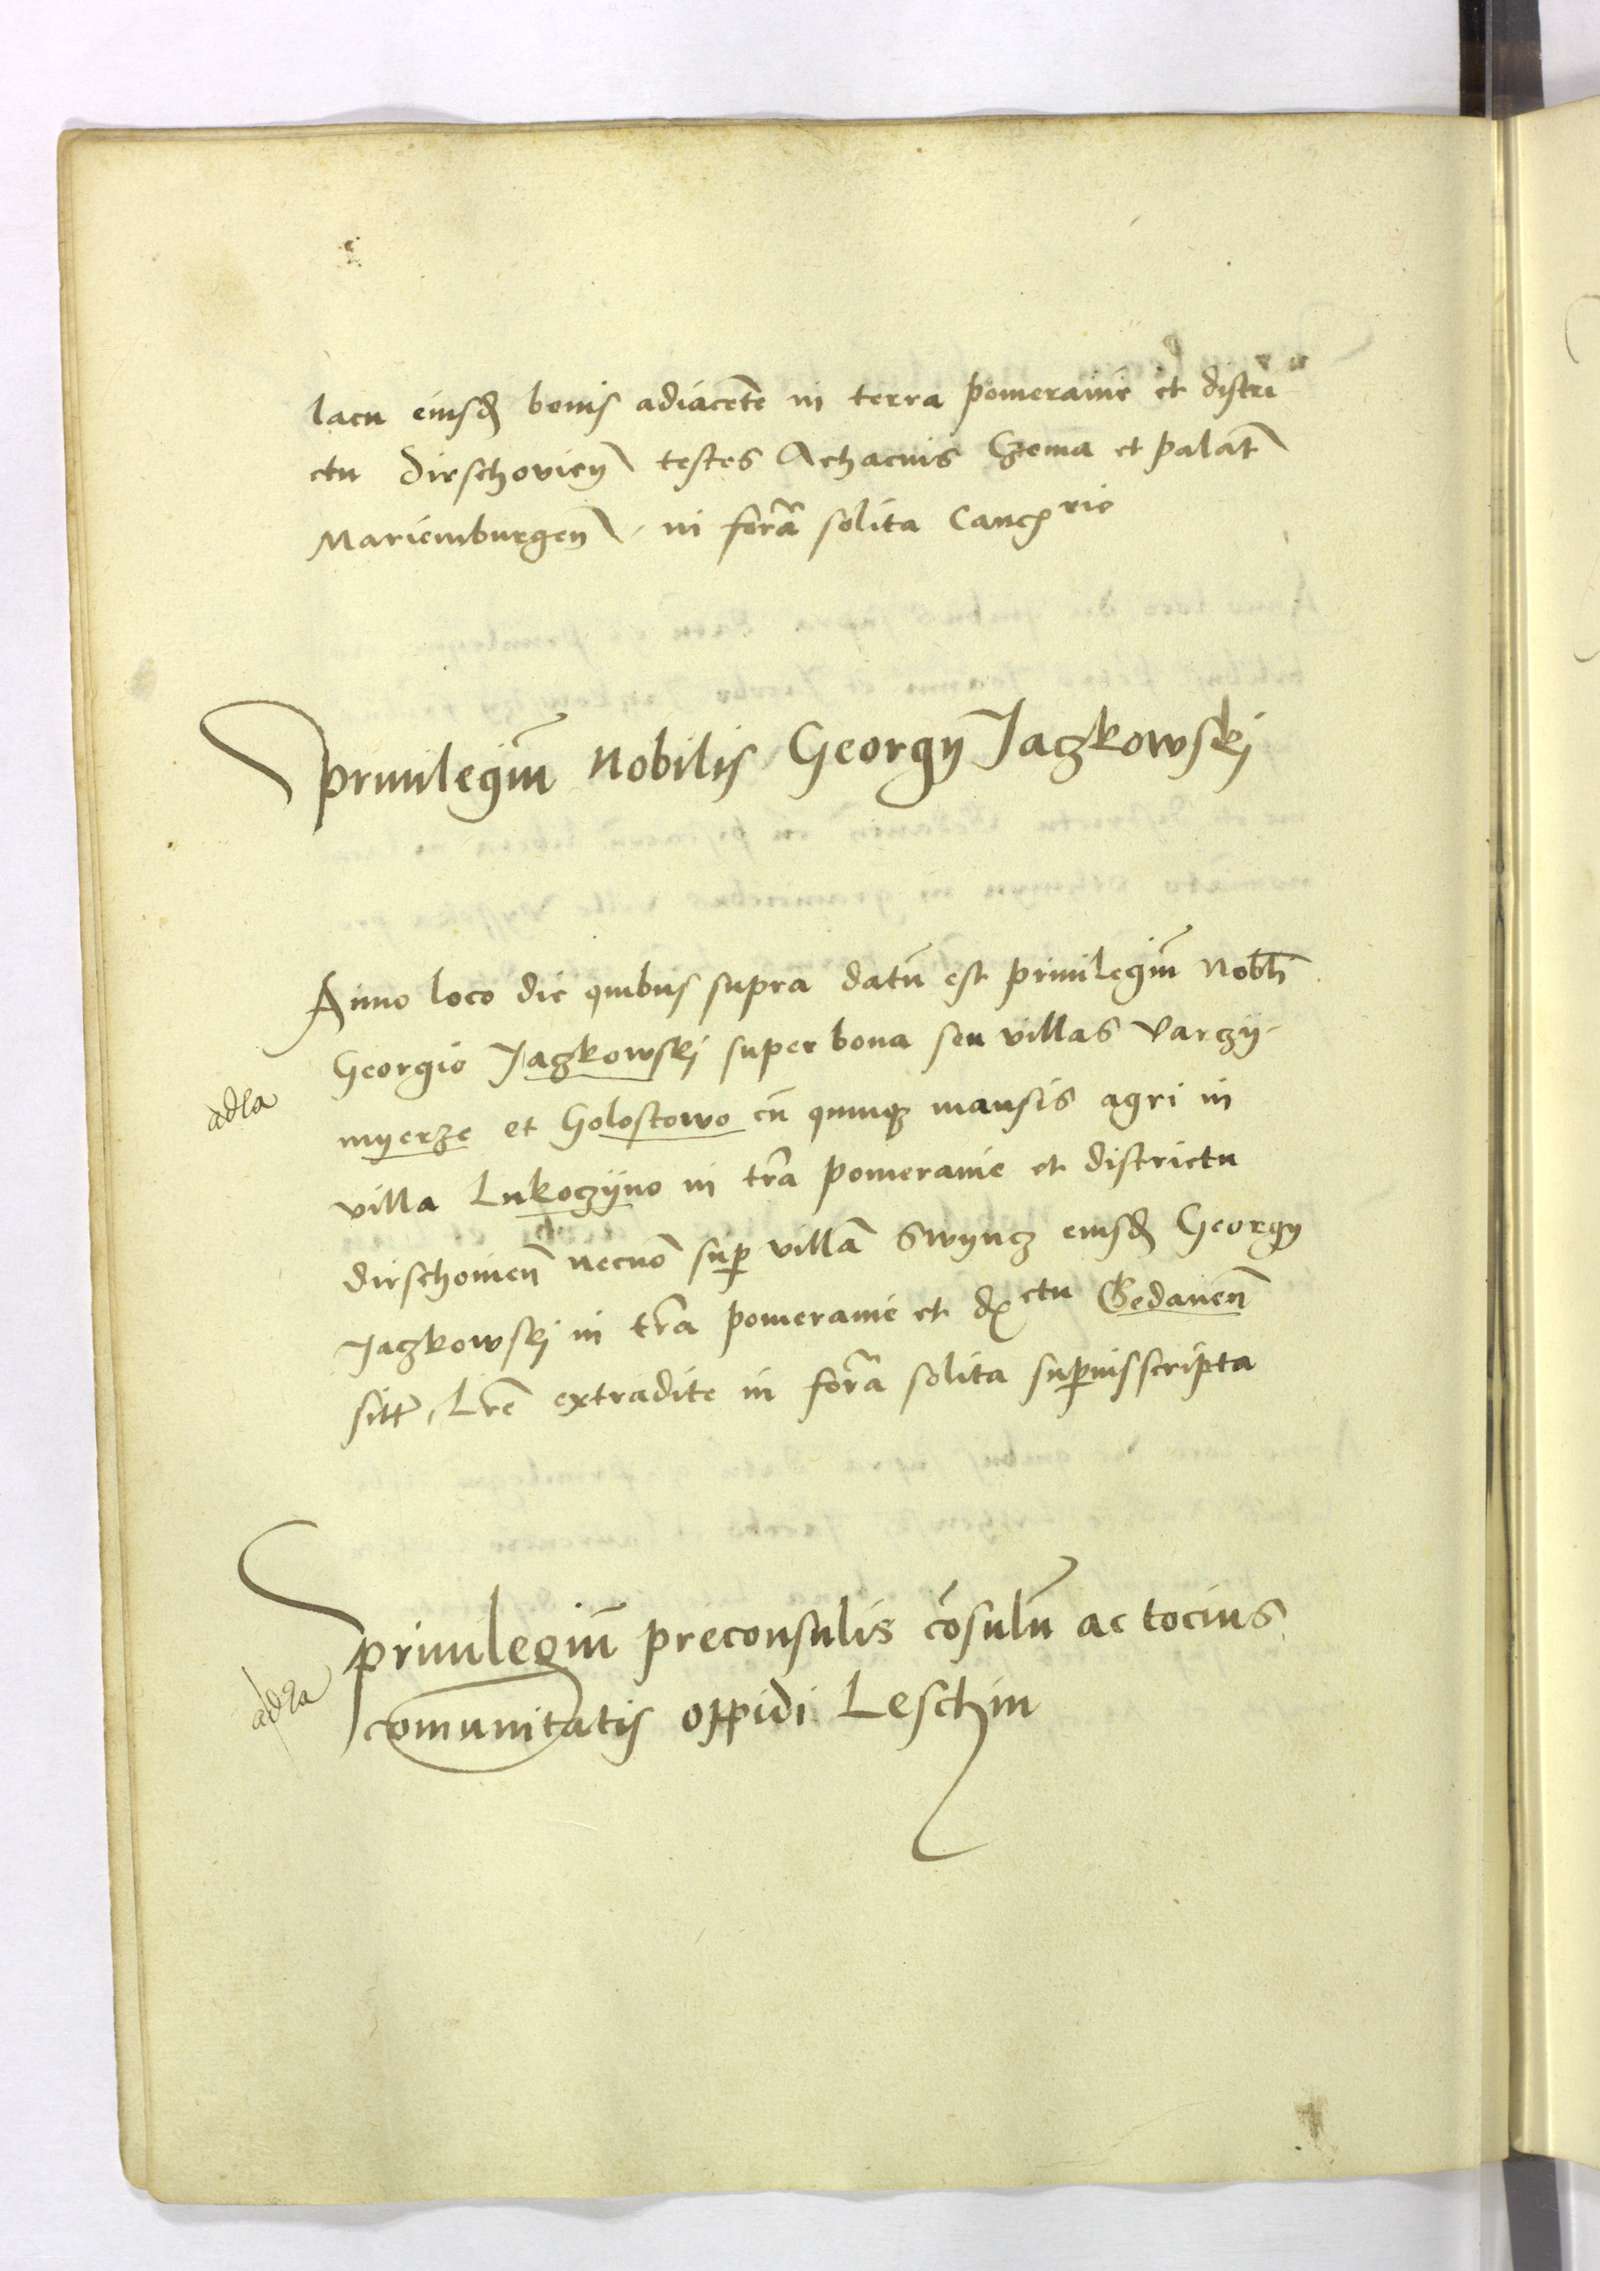 lacu eiusd bonis adiacēte in terra pomeranie et distri
ctu dirschovien testes Achacius Czema et palat
Mariemburgen in forā solita Cancrie
privilegiū nobilis Georgy Jaczkowskj
Anno loco die quibus supra datū est privilegiū Nobli
Georgio Jaczkowskj super bona seu villas Varczy-
myerze et Golostowo cū quinqz mansis agri in
villa Lukoczyno in tra pomeranie et districtu
dirschovien necnō sup villā Swyncz eiusd Georgy
Jaczkowskj in tra pomeranie et dctu Gedanen
sitt, Lre extradite in forā solita supius scripta
privilegiū preconsulis cōsulū ac tocius
comunitatis oppidi Leschin